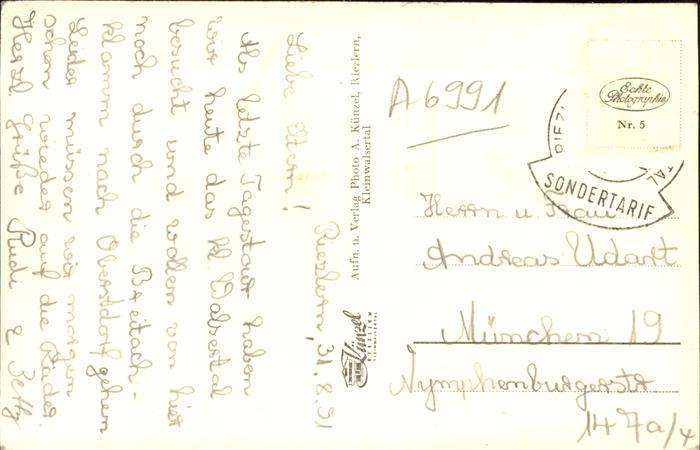 Riezlern, 31.8.51
Liebe Eltern!
Als letzte Tagestour haben
wir heute das kl. Walsertal
besucht und wollen von hier
noch durch die Breitach-
klamm nach Oberstdorf gehen.
Leider müssen wir morgen
schon wieder auf die Räder.
Herzl. Grüße Rudi &
Aufn. u. Verlag Photo A. Künzel, Riezlern,
Kleinwalsertal
Künzel
RIEZLERN
A 6991
Echte
Photographie
Nr. 5
RIEZL
TAL
SONDERTARIF
Herrn u. Frau
Andreas Udart
München 19
Nymphenburgerstr.
147a/4